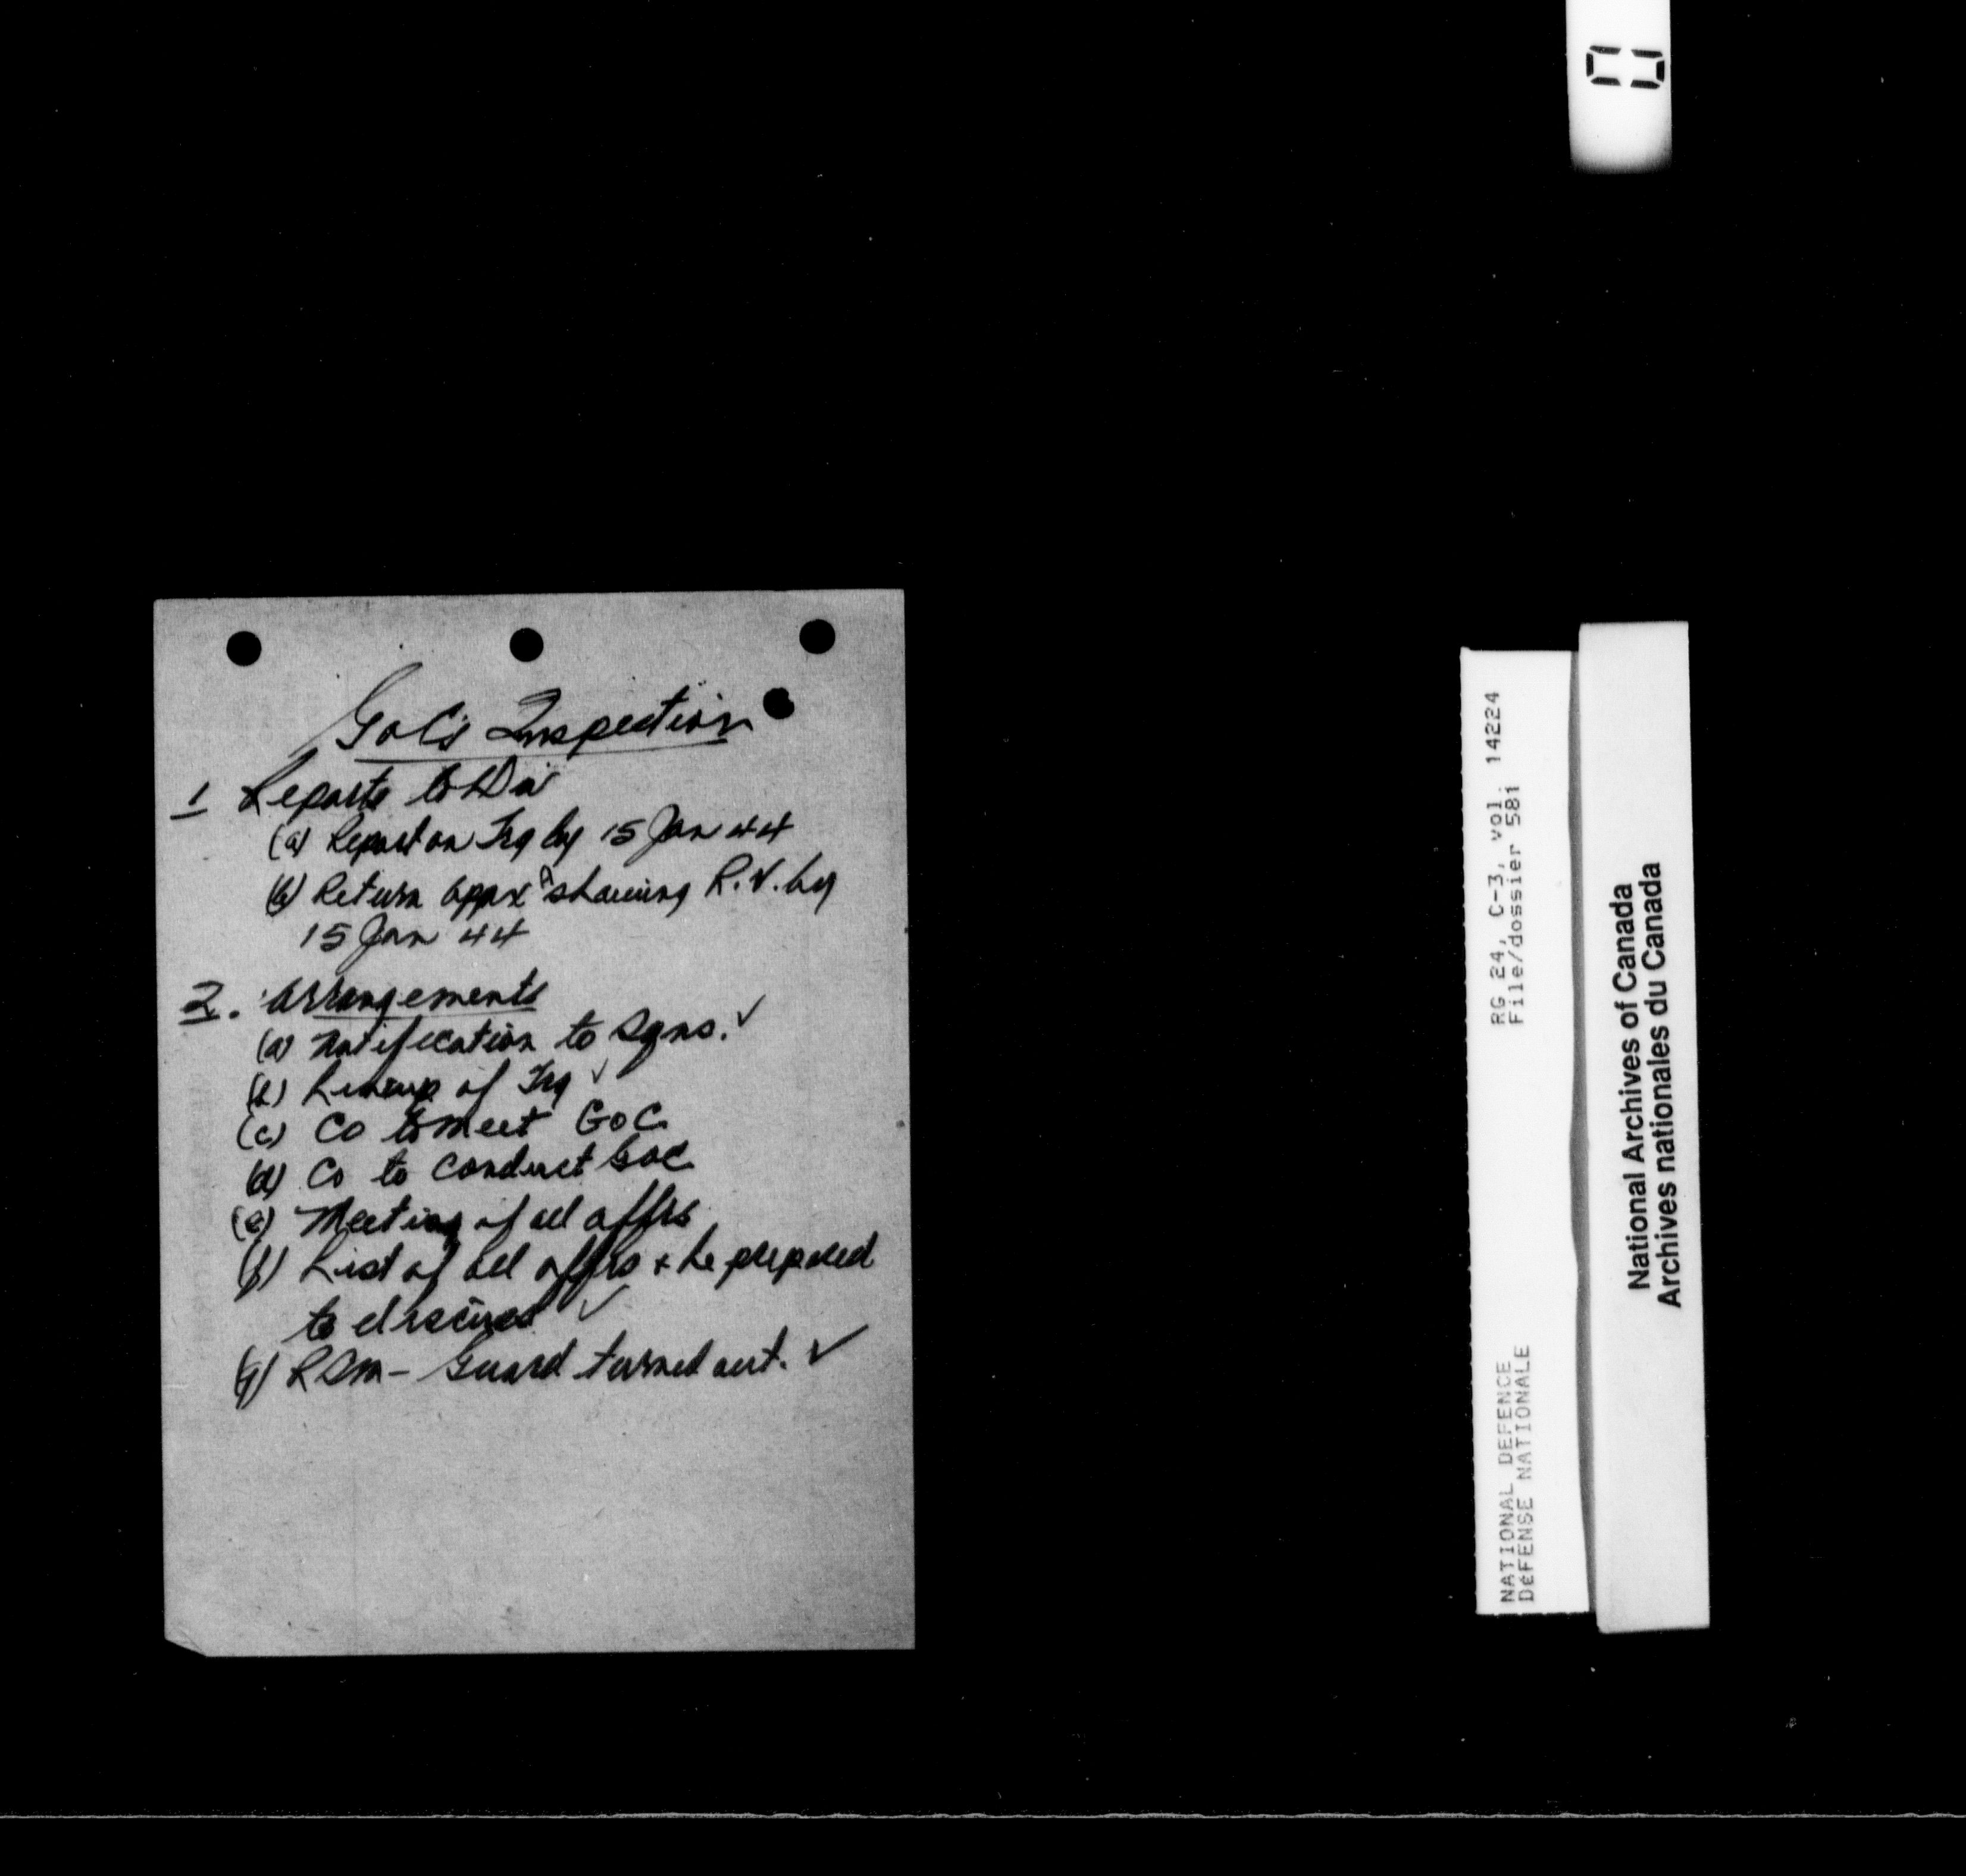 GOC's Inspection
1 Reports to Div
(a) Report on Trg by 15 Jan 44
(b) Return Appx "A" showing R.V. by
15 Jan 44
2. Arrangements
(a) Notification to Sqns. ✓
(b) Lineup of Trg ✓
(c) CO to meet GOC
(d) CO to conduct GOC
(e) Meeting of all offrs
(f) List of all offrs + be prepared
to discuss ✓
(g) RSM - Guard turned out. ✓
RG 24, C-3, vol. 14224
File/dossier 581
NATIONAL DEFENCE
DÉFENSE NATIONALE
National Archives of Canada
Archives nationales du Canada